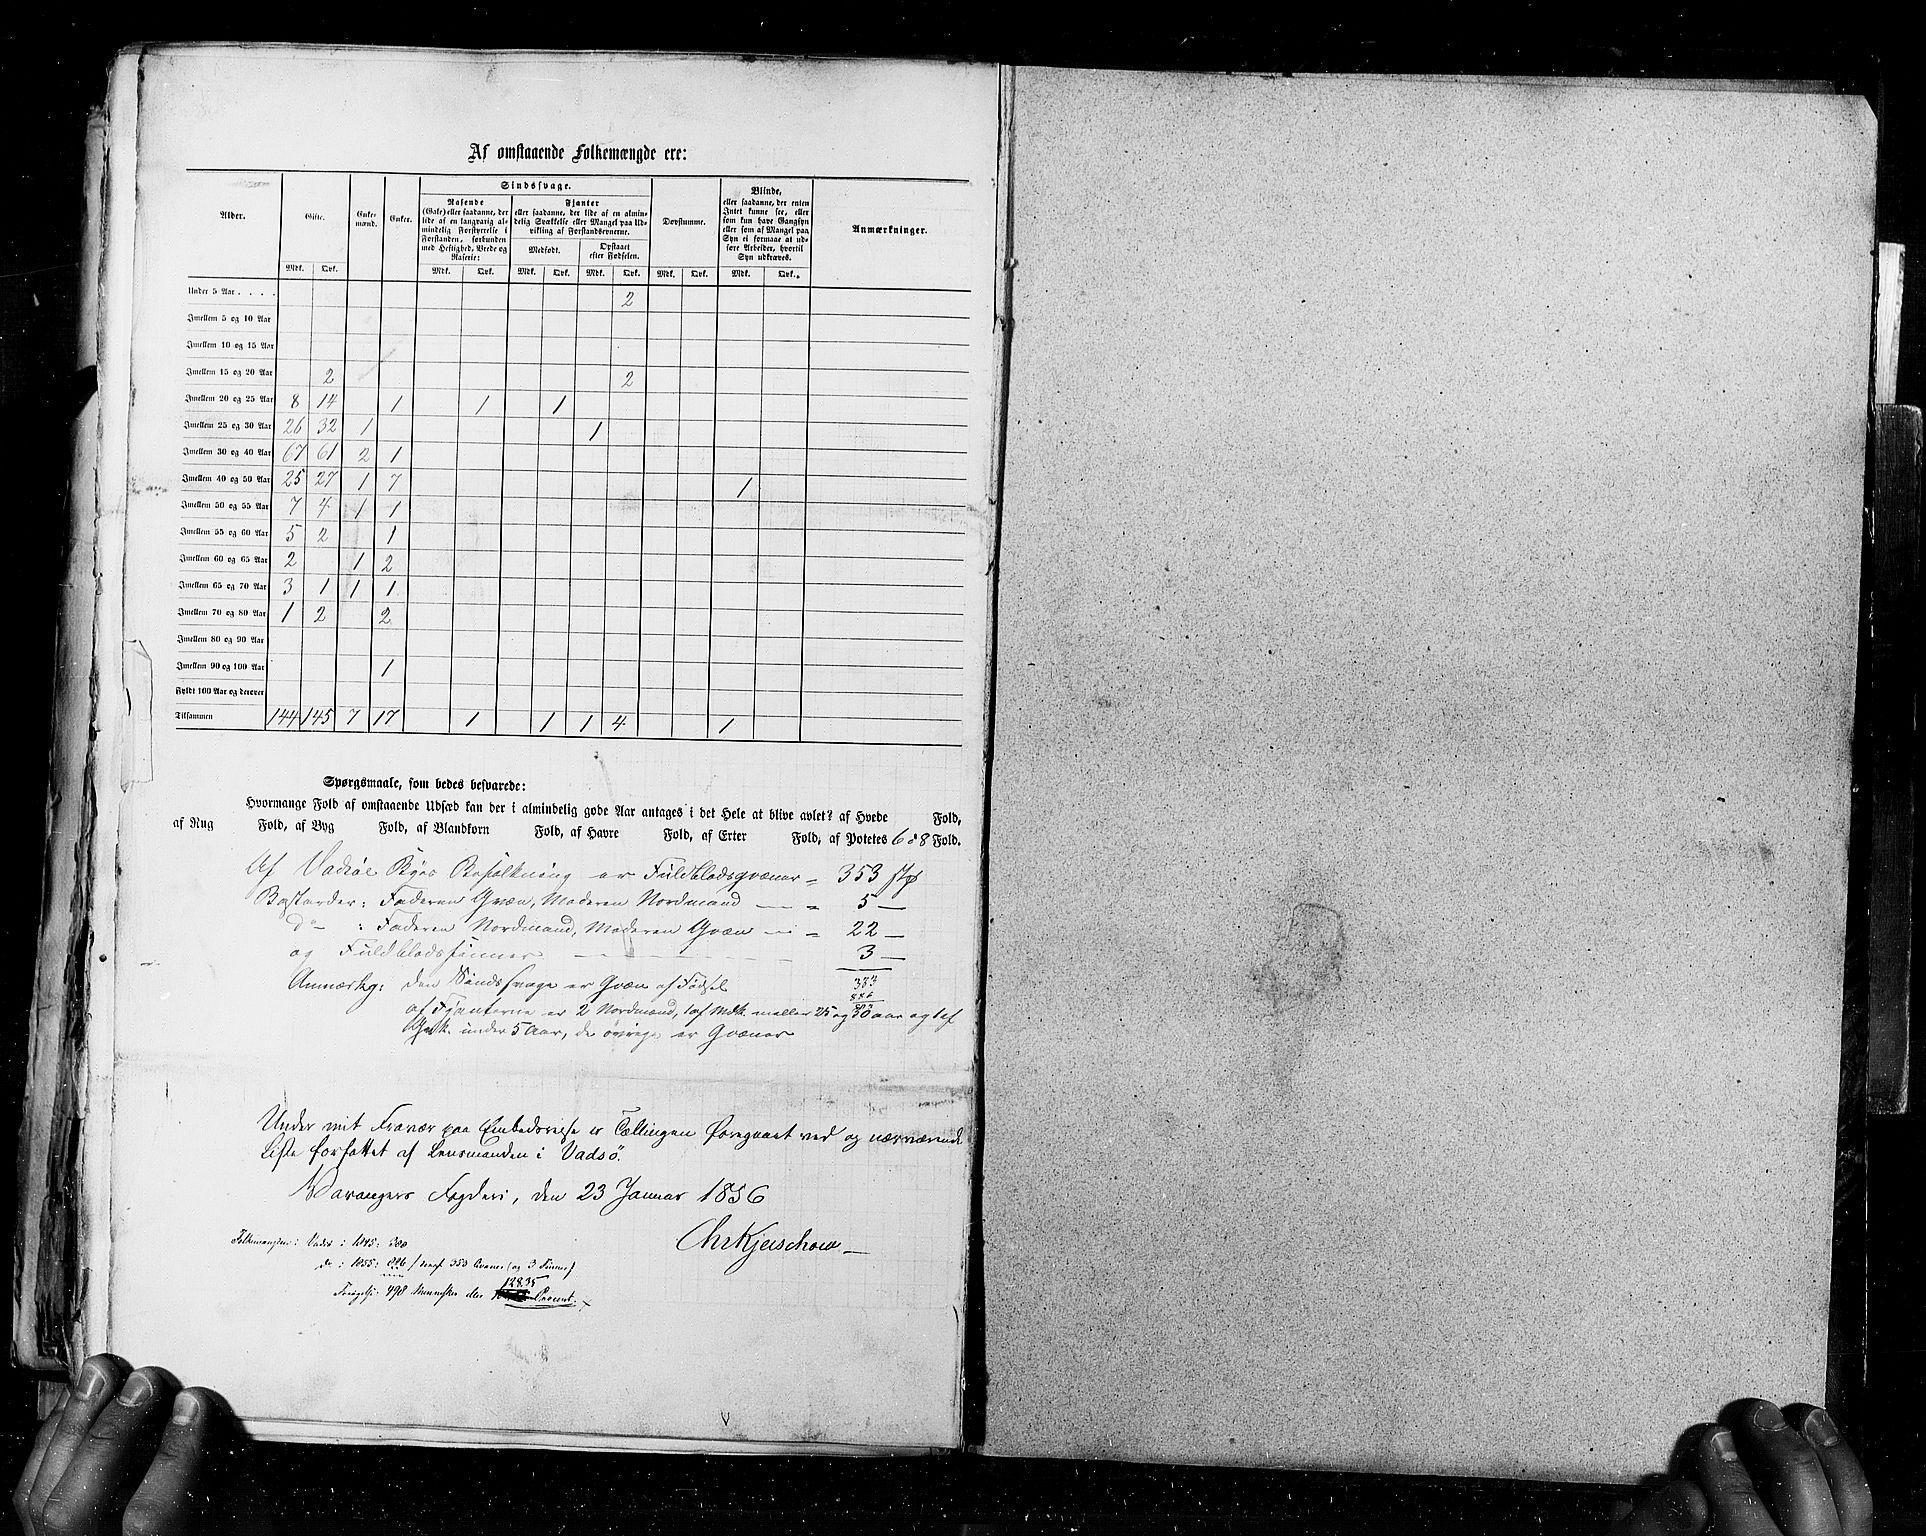 Af omstaaende Folkemængde ere:
Alder. Gifte. Enke- mænd. Enker. Sindssvage. Døvstumme. Blinde, Anmærkninger.
Rasende (Gale) eller saadanne, der lide af en langvarig almindelig Forstyrrelse i Forstanden, forbunden med Heftighed, Vrede og Raserie:
Fjanter eller saadanne, der lide af en almindelig Svækkelse eller Mangel paa Udvikling af Forstandsevnerne.
eller saadanne, der enten Intet kunne see, eller som kun have Gangsyn eller som af Mangel paa Syn ei formaae at udføre Arbeider, hvortil Syn udkræves.
Medfødt. Opstaaet efter Fødselen.
Mdk. Qvk. Mdk. Qvk. Mdk. Qvk. Mdk. Qvk. Mdk. Qvk. Mdk. Qvk.
Under 5 Aar . . . . 2
Imellem 5 og 10 Aar
Imellem 10 og 15 Aar
Imellem 15 og 20 Aar 2 2
Imellem 20 og 25 Aar 8 14 1 1 1
Imellem 25 og 30 Aar 26 32 1 1
Imellem 30 og 40 Aar 67 61 2 1
Imellem 40 og 50 Aar 25 27 1 7 1
Imellem 50 og 55 Aar 7 4 1 1
Imellem 55 og 60 Aar 5 2 1
Imellem 60 og 65 Aar 2 1 2
Imellem 65 og 70 Aar 3 1 1 1
Imellem 70 og 80 Aar 1 2 2
Imellem 80 og 90 Aar
Imellem 90 og 100 Aar 1
Fyldt 100 Aar og derover
Tilsammen 144 145 7 17 1 1 1 4 1
Spørgsmaale, som bedes besvarede:
Hvormange Fold af omstaaende Udsæd kan der i almindelig gode Aar antages i det Hele at blive avlet? af Hvede Fold,
af Rug Fold, af Byg Fold, af Blandkorn Fold, af Havre Fold, af Erter Fold, af Potetes 6 à 8 Fold.
Af Vadsøe Byes Befolkning er Fuldblodsqvæner = 353 stk
Bastarder: Faderen Qvæn, Moderen Nordmand — = 5 —
do : Faderen Nordmand, Moderen Qvæn — = 22 —
og Fuldblodsfinner — 3 —
Anmærkg: den Sindssvage er Qvæn af Fødsel 383
af Fjanterne er 2 Nordmænd, 1 af Mdk. mellem 25 og 30 aar og 1 af
Qvk. under 5 Aar, de øvrige er Qvæner
Under mit Fravær paa Embedsreise er Tællingen foregaaet ved og nærværende
Liste forfattet af Lensmanden i Vadsö.
Varangers Fogderi, den 23 Januar 1856
Chr Kjerschow
Folkemængden: Vadsö: 1845: 388
do : 1855: 886 / heraf 353 Qvæner (og 3 Finner)
Forøgelse: 498 Mennesker eller 128.35 Procent.